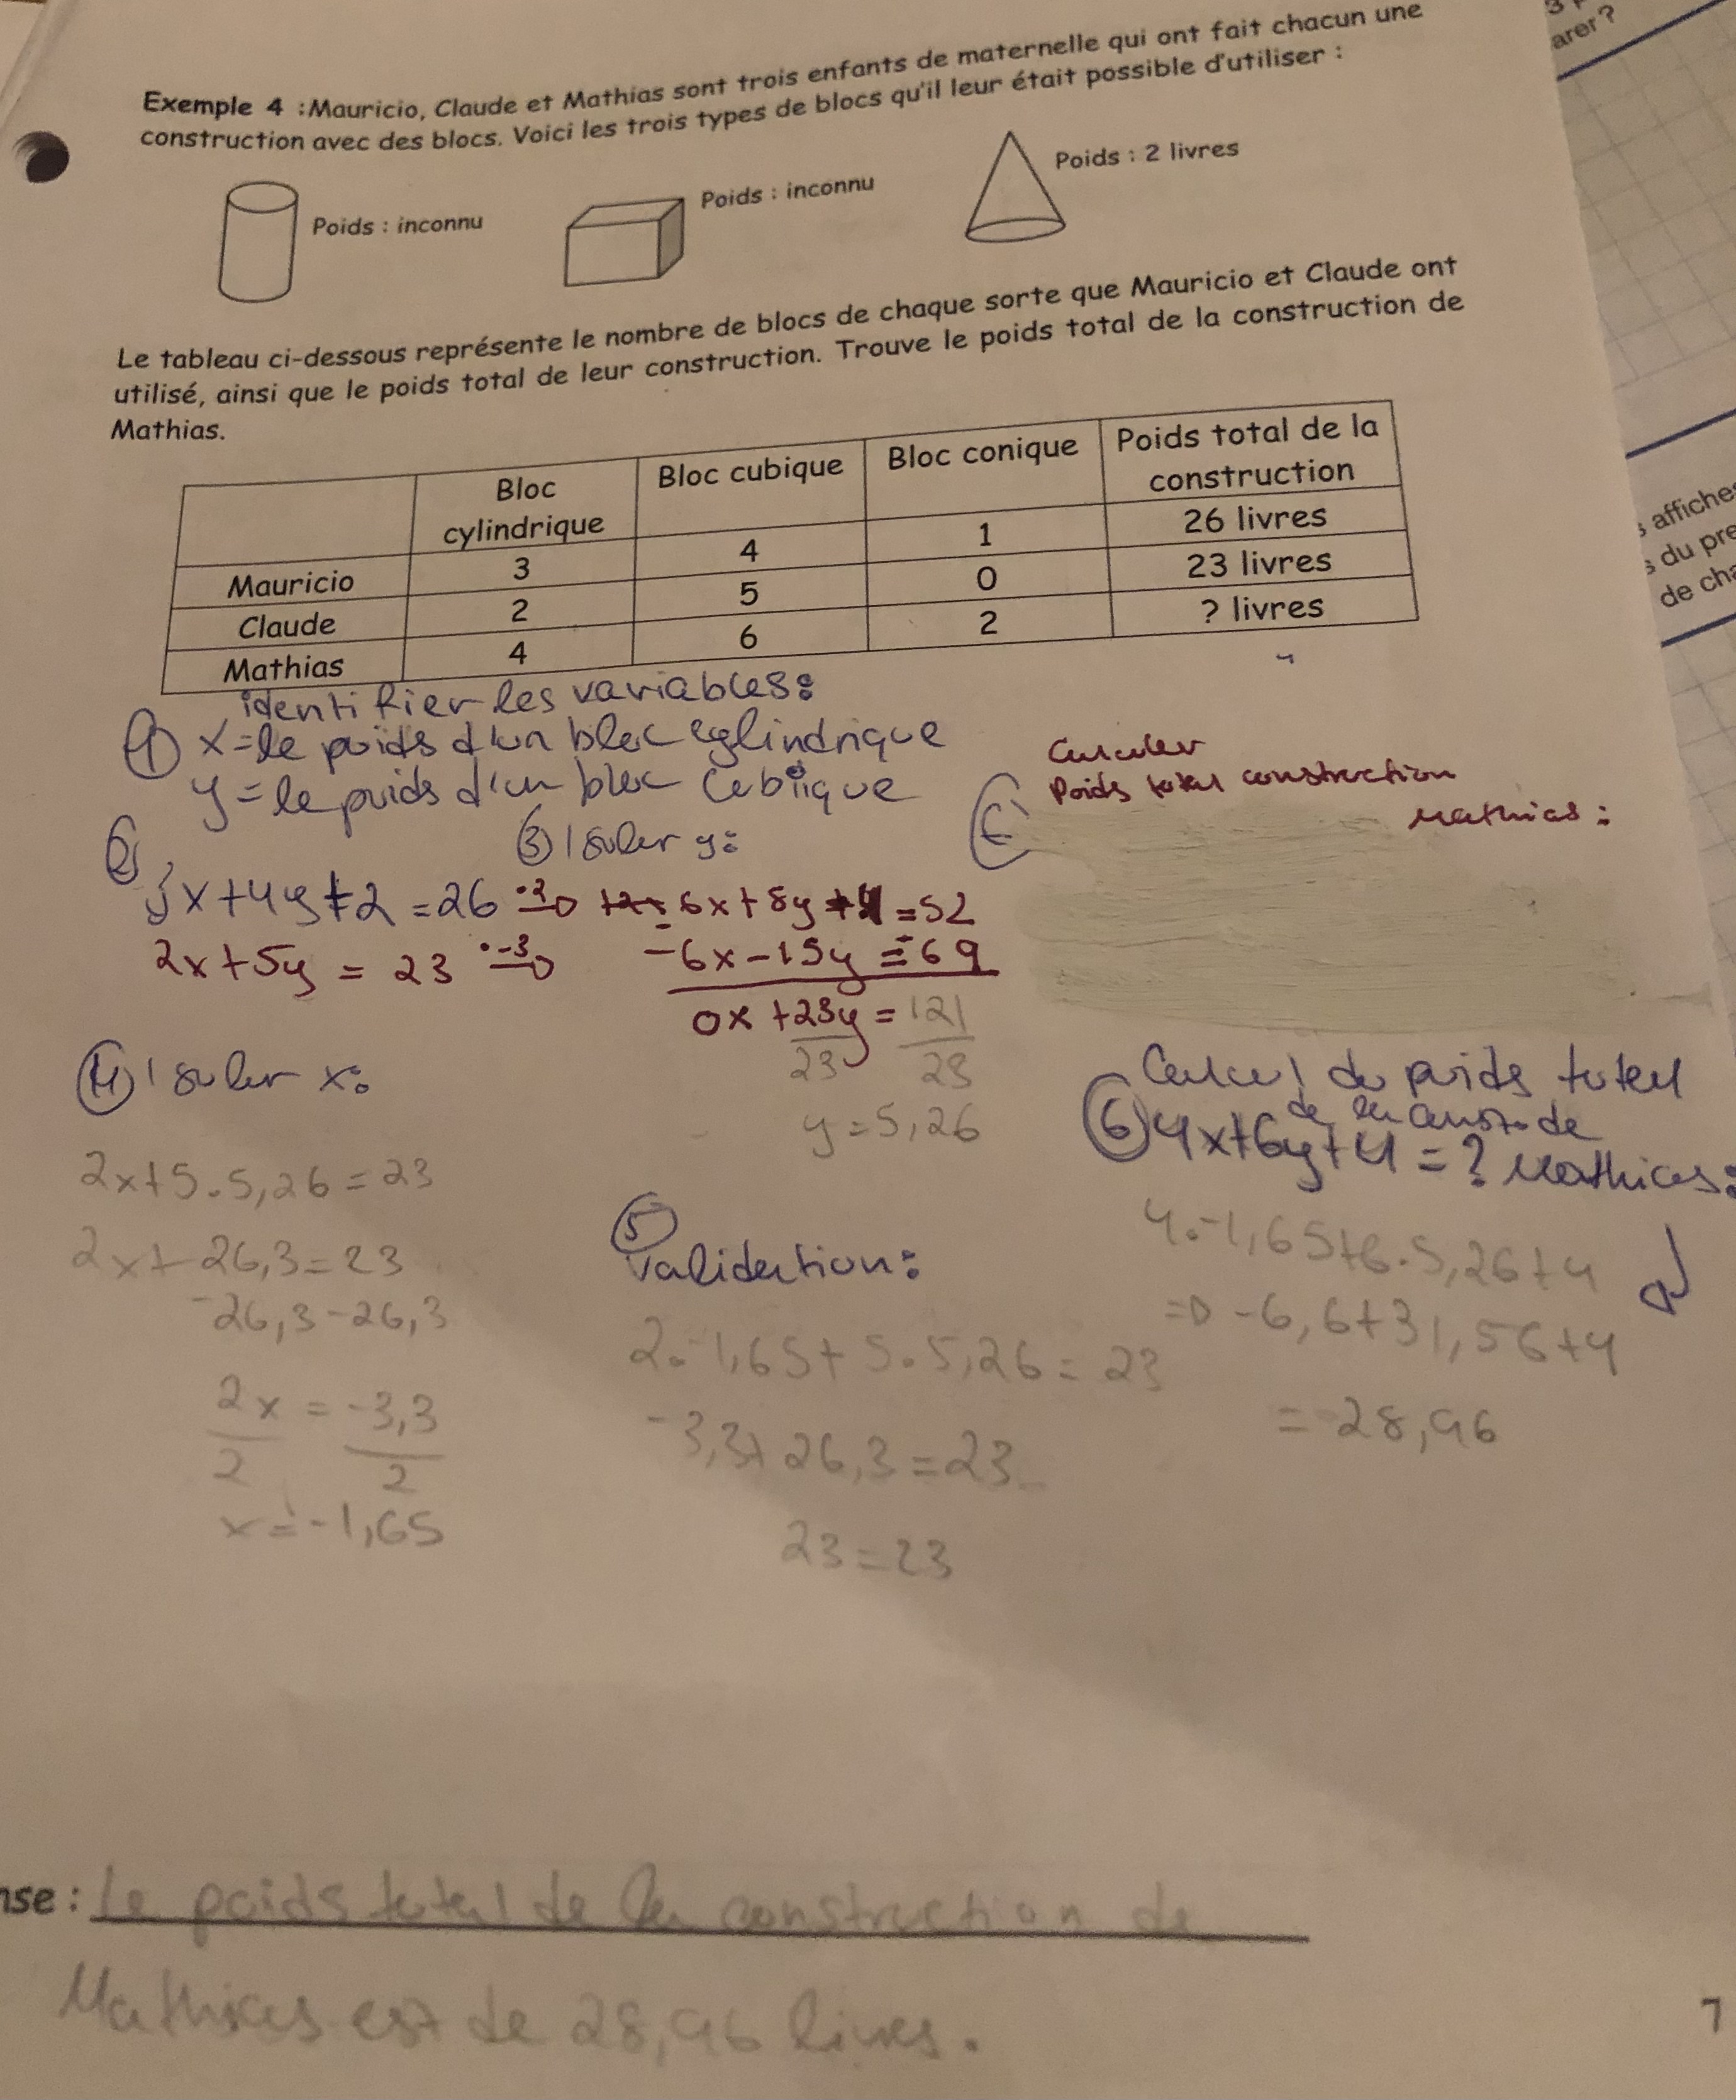 3
arer?
Exemple 4 :Mauricio, Claude et Mathias sont trois enfants de maternelle qui ont fait chacun une
construction avec des blocs. Voici les trois types de blocs qu'il leur était possible d'utiliser :
Poids : inconnu
Poids : inconnu
Poids : 2 livres
Le tableau ci-dessous représente le nombre de blocs de chaque sorte que Mauricio et Claude ont
utilisé, ainsi que le poids total de leur construction. Trouve le poids total de la construction de
Mathias.
Bloc cylindrique Bloc cubique Bloc conique Poids total de la construction
Mauricio 3 4 1 26 livres
Claude 2 5 0 23 livres
Mathias 4 6 2 ? livres
s affiches
s du pre
de cha
identifier les variables:
① x = le poids d'un bloc cylindrique
y = le poids d'un bloc cubique
Calculer
Poids total construction
Mathias :
② 3x+4y+2=26 ·2
2x+5y = 23 ·-3
③ Isoler y:
6x+8y+4=52
-6x-15y=-69
0x+23y=121
23 23
y=5,26
④ Isoler x:
2x+5.5,26=23
2x+26,3=23
-26,3-26,3
2x = -3,3
2 2
x=-1,65
⑤ Validation:
2.-1,65+5.5,26=23
-3,3+26,3=23
23=23
Calcul du poids total
de la const. de
⑥ 4x+6y+4=? Mathias:
4.-1,65+6.5,26+4
=> -6,6+31,56+4
= 28,96
nse : Le poids total de la construction de
Mathias est de 28,96 livres.
7